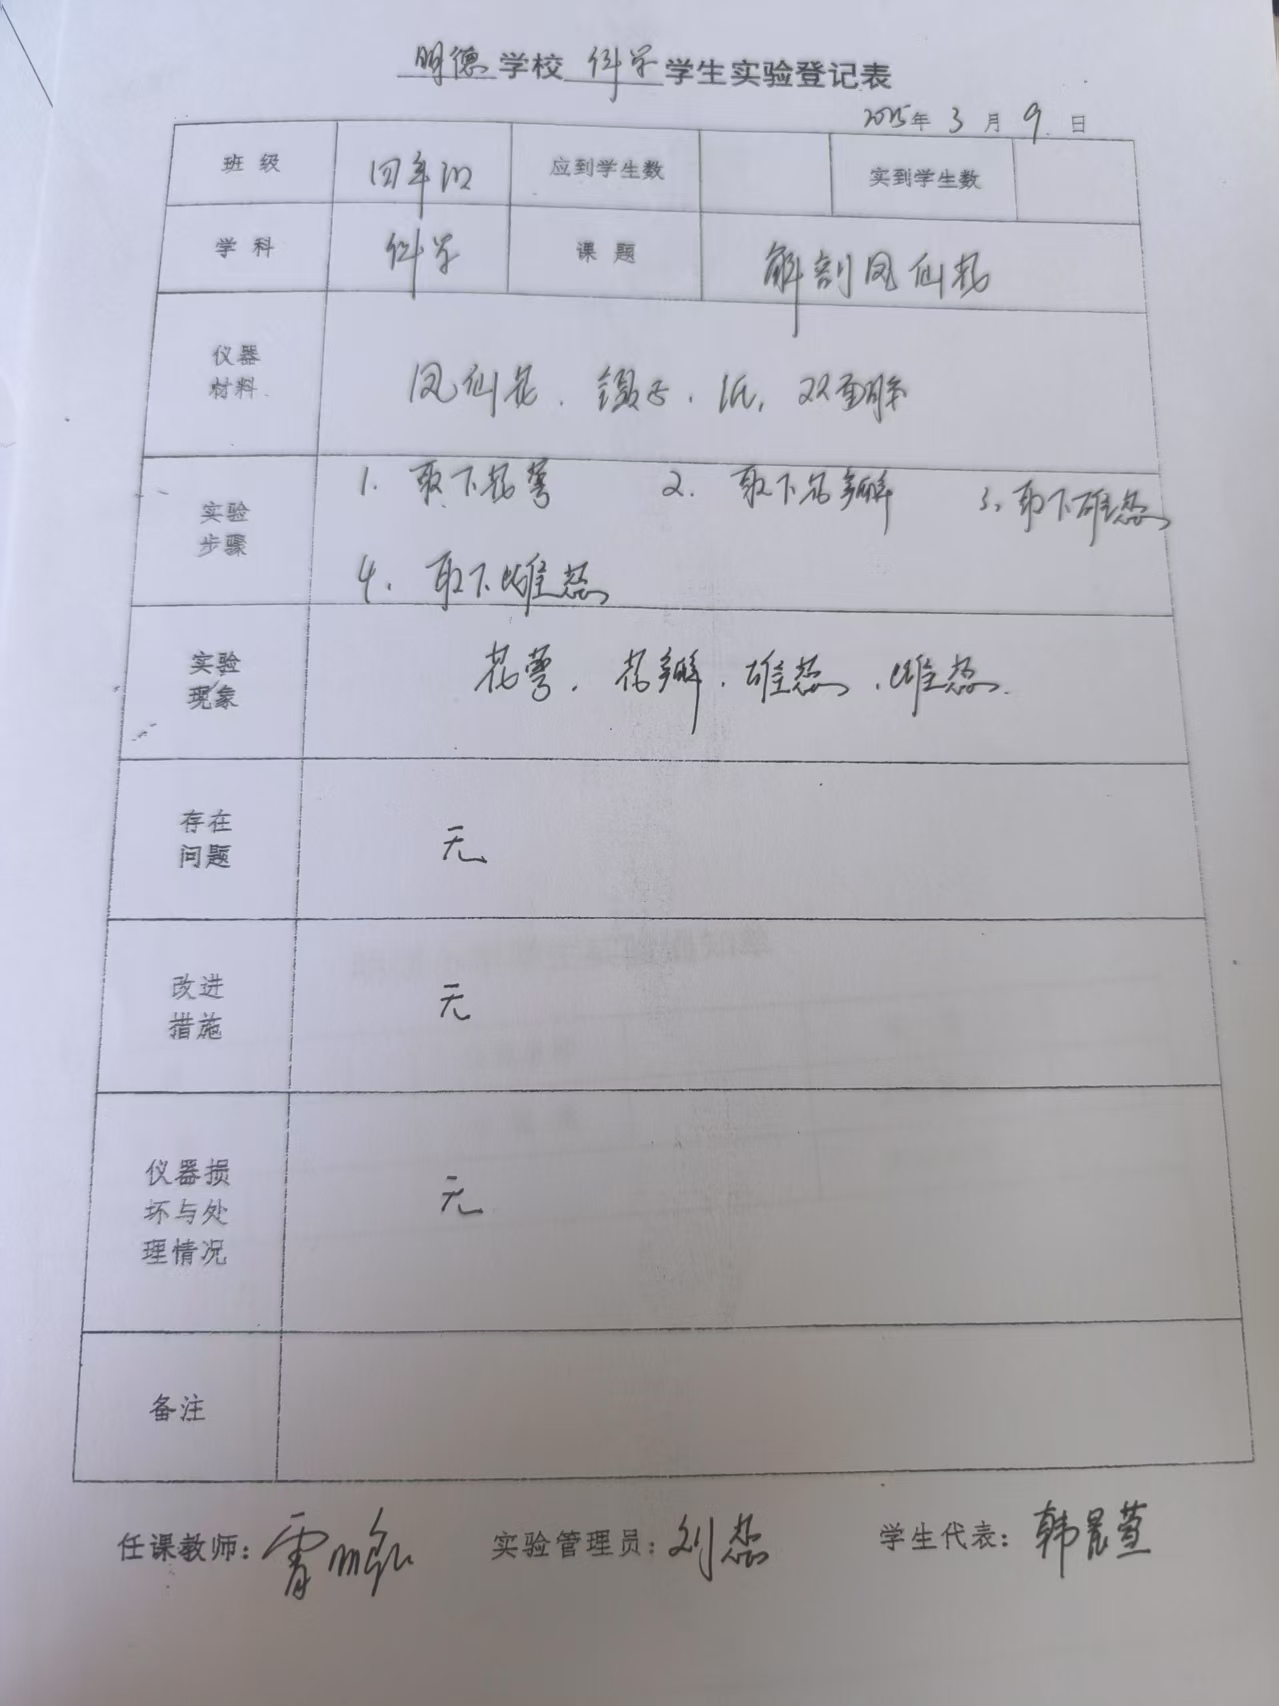 明德学校科学学生实验登记表
2025年3月9日
班级 四年级 应到学生数 实到学生数
学科 科学 课题 解剖凤仙花
仪器
材料
凤仙花、镊子、纸、双面胶
实验
步骤
1. 取下花萼 2. 取下花瓣 3. 取下雄蕊
4. 取下雌蕊
实验
现象
花萼、花瓣、雄蕊、雌蕊.
存在
问题
无
改进
措施
无
仪器损
坏与处
理情况
无
备注
任课教师: 实验管理员: 刘蕊 学生代表: 韩晨萱